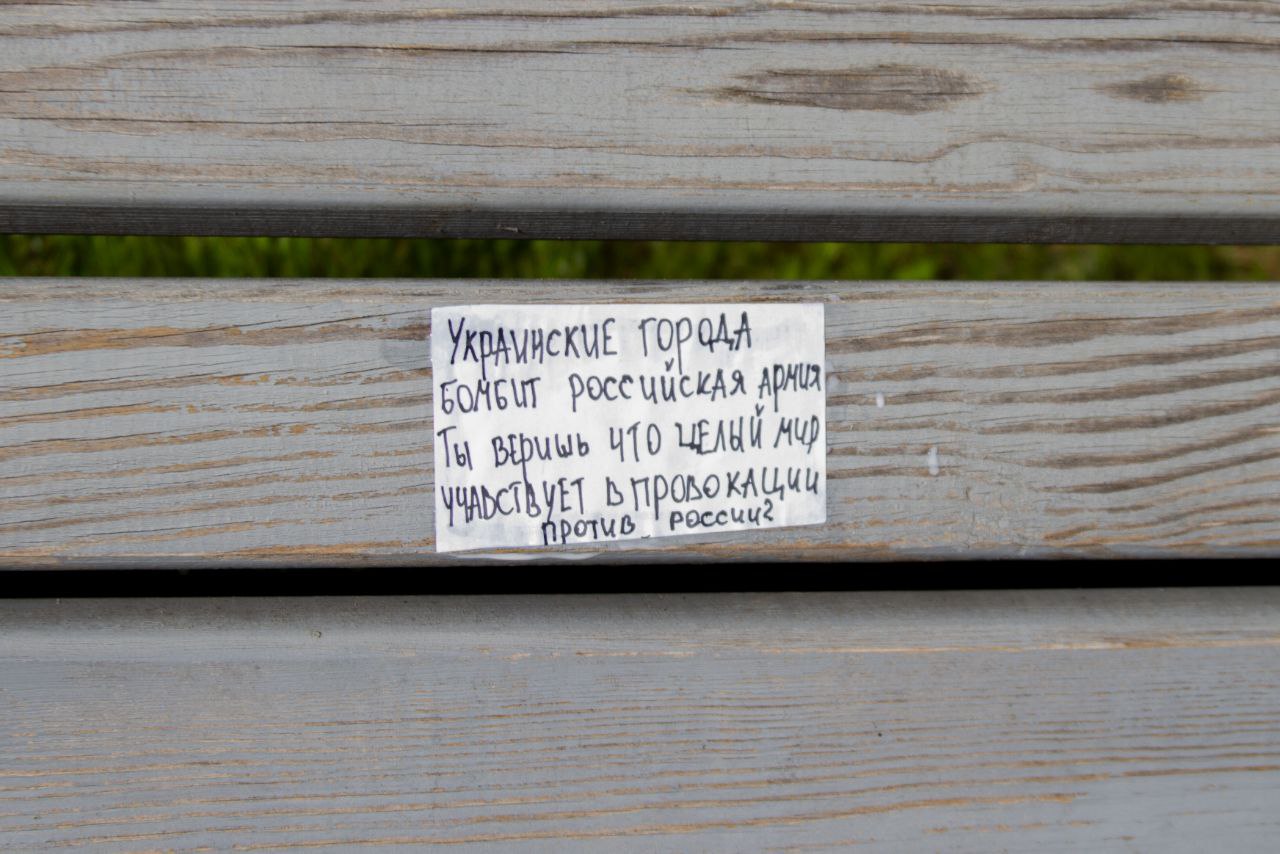 Украинские города
бомбит российская армия
Ты веришь что целый мир
учавствует в провокации
против России?